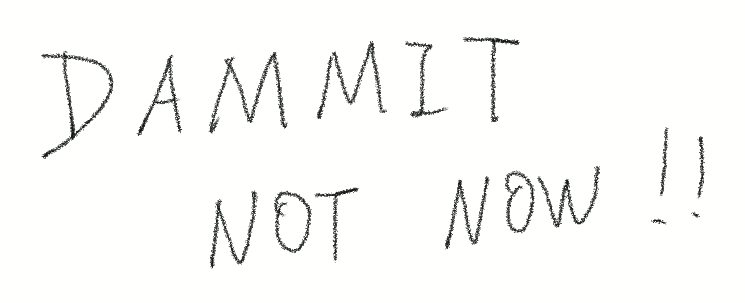 DAMMIT
NOT NOW!!